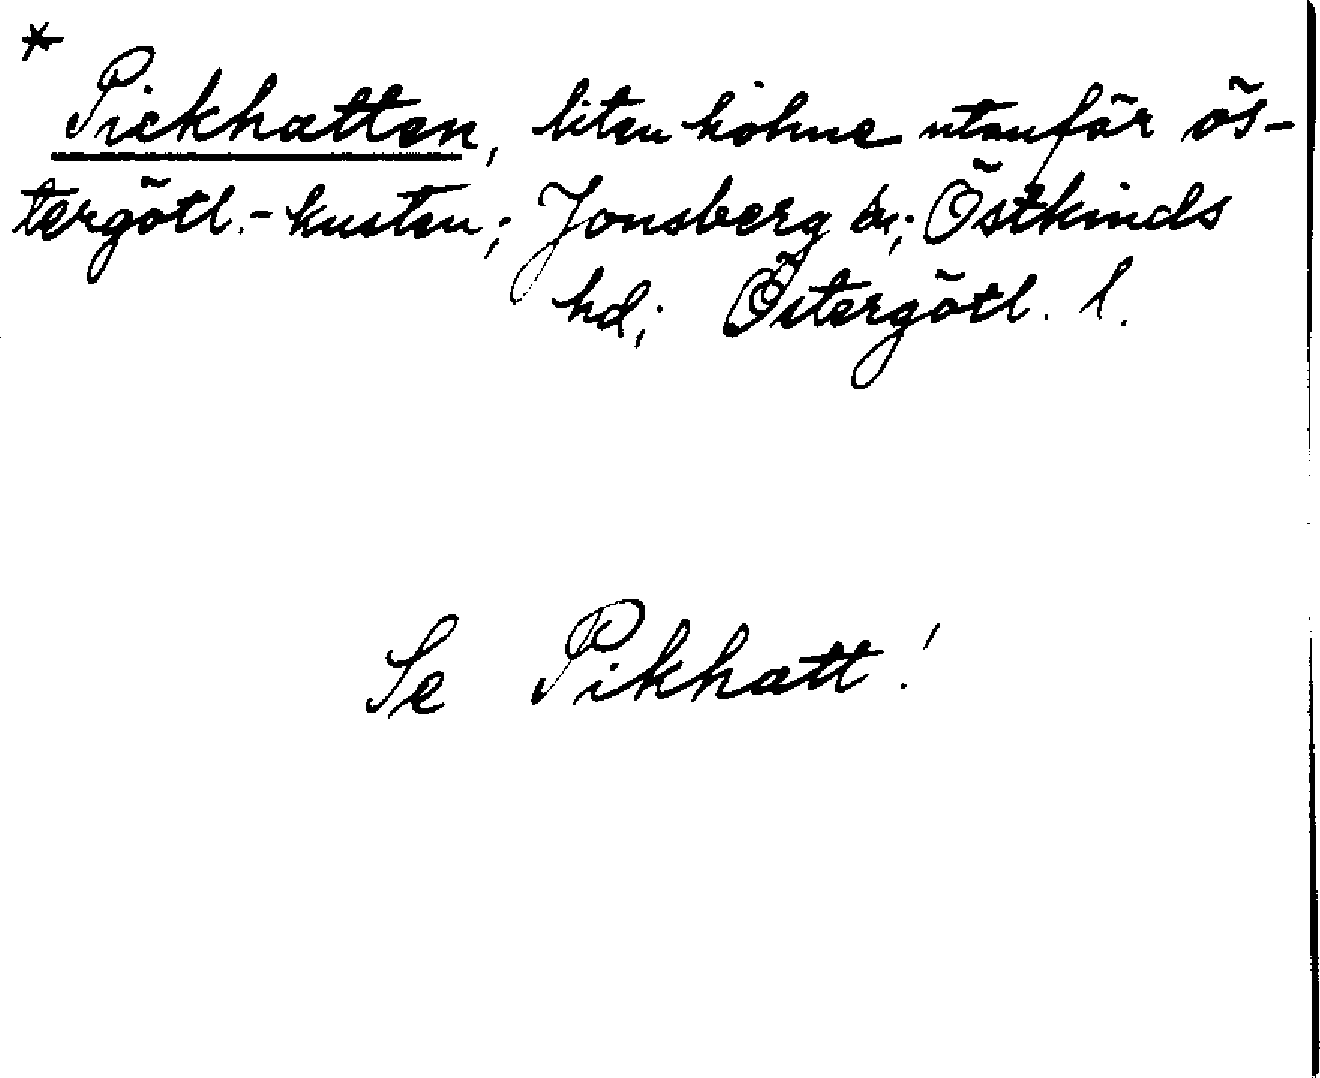 *
Pickhatten, liten holme utanför ös-
tergötl.-kusten; Jonsberg sn; Östkinds
hd; Östergötl. l.
Se Pikhatt!